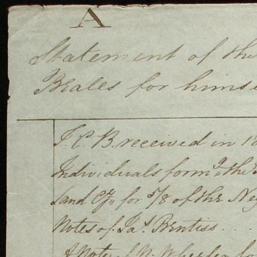 A
Statement of the
Beales for himse
J. C. B. received in 18
Individuals form^g the
sand &c for 5/8 of the Ne
Notes of Ja^s Prentiss . . .
A Note of N Wheeler fo